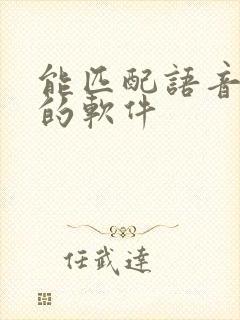 能匹配語音
的軟件
任武達